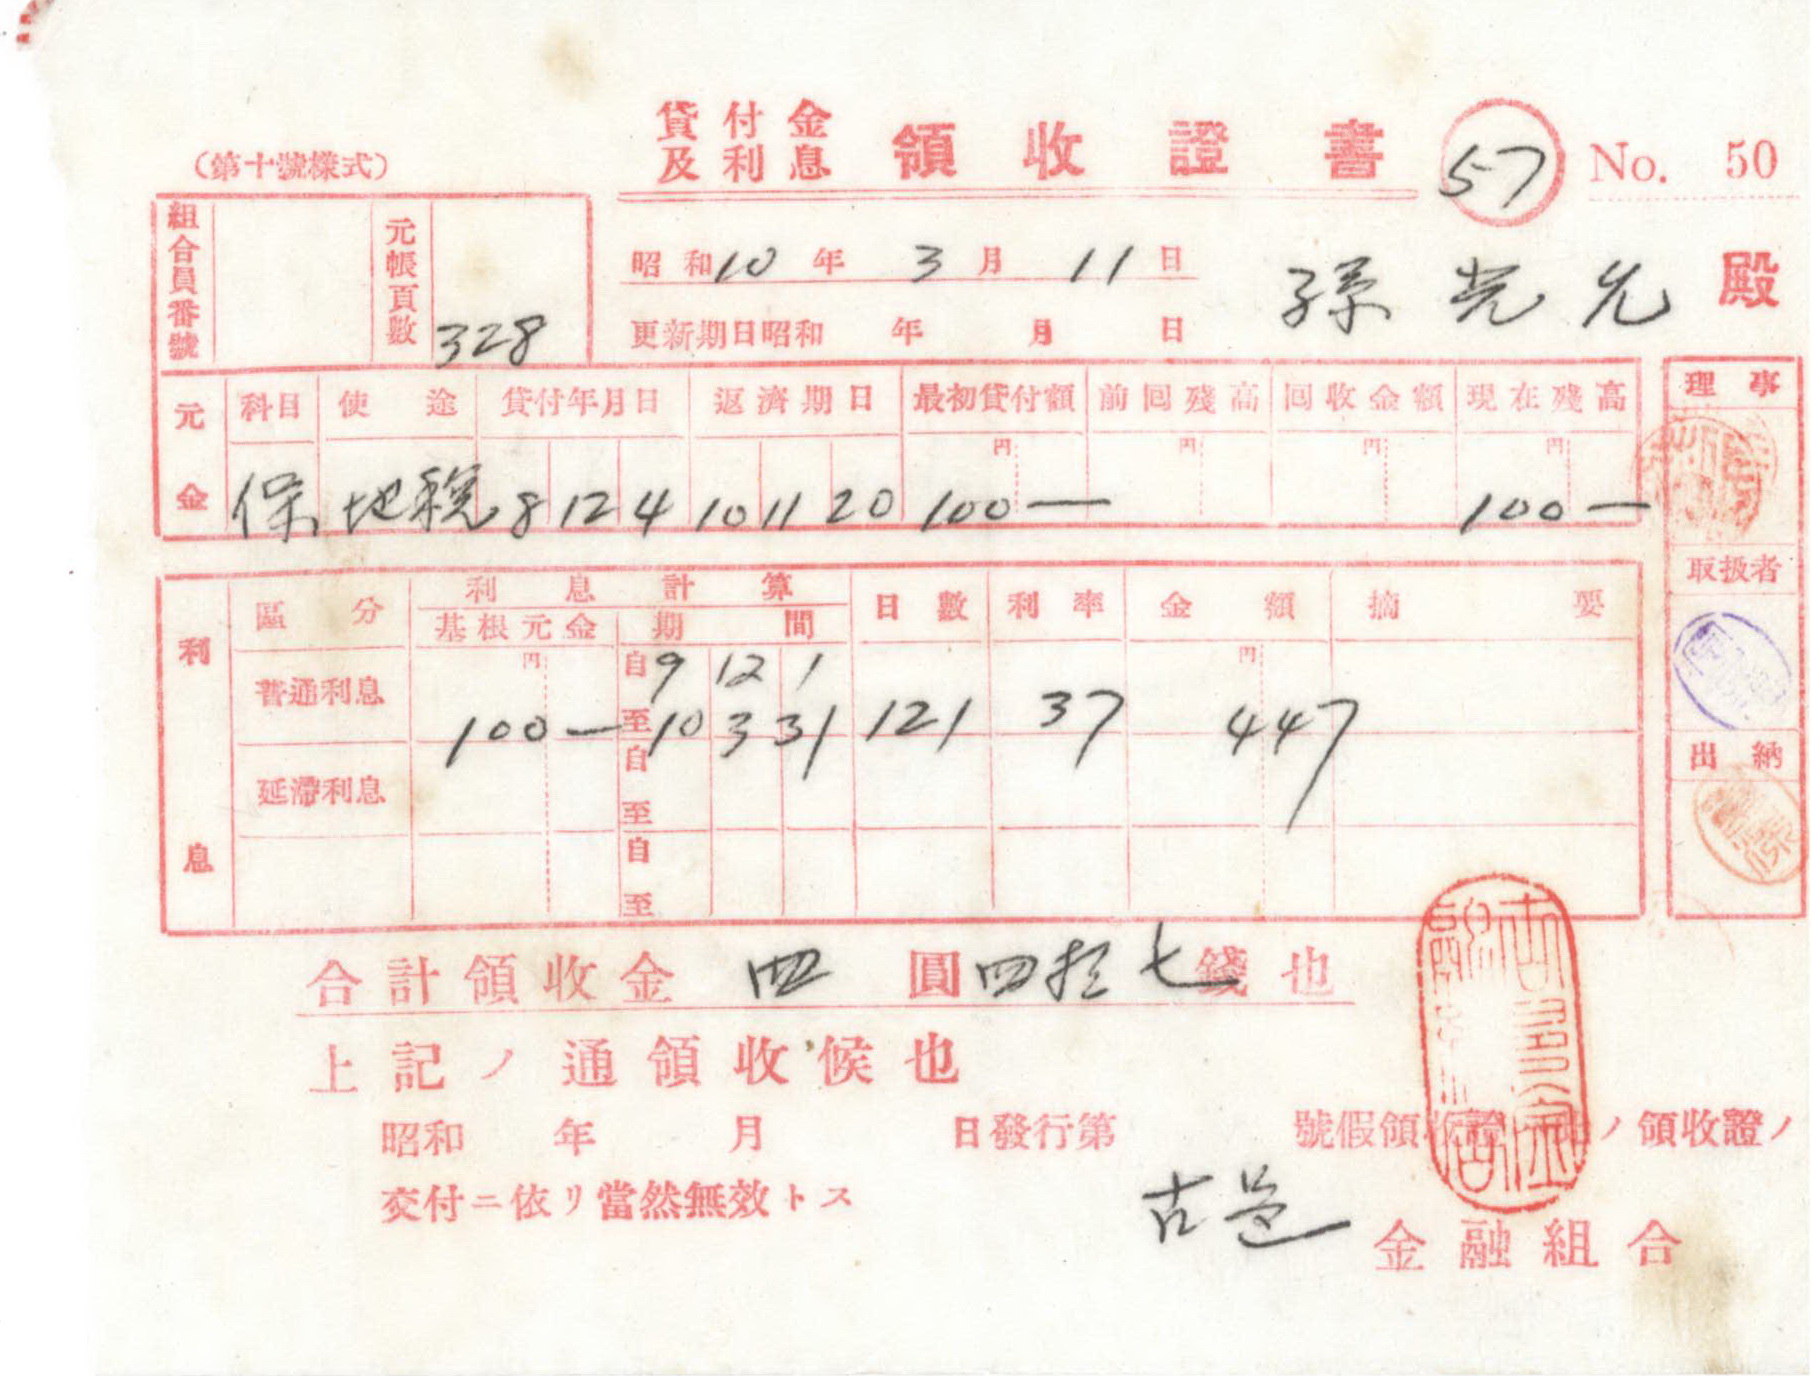 (第十號樣式)
貸付金
及利息 領收證書 57 No. 50
組合員番號 元帳頁數 328
昭和10年3月11日
更新期日昭和 年 月 日
孫 光 允 殿
元金 科目 使途 貸付年月日 返濟期日 最初貸付額 前回殘高 回收金額 現在殘高
円 円 円 円
保 地稅 8 12 4 10 11 20 100— 100—
理事
取扱者
出納
利息 區分 利息計算 日數 利率 金額 摘要
基根元金 期間
普通利息 円 自 9 12 1 円
100— 至 10 3 31 121 37 447
延滯利息 自
至
自
至
合計領收金 四 圓 四拾七 錢也
上記ノ通領收候也
昭和 年 月 日發行第 號假領收證 ノ領收證ノ
交付ニ依リ當然無效トス
古邑 金融組合